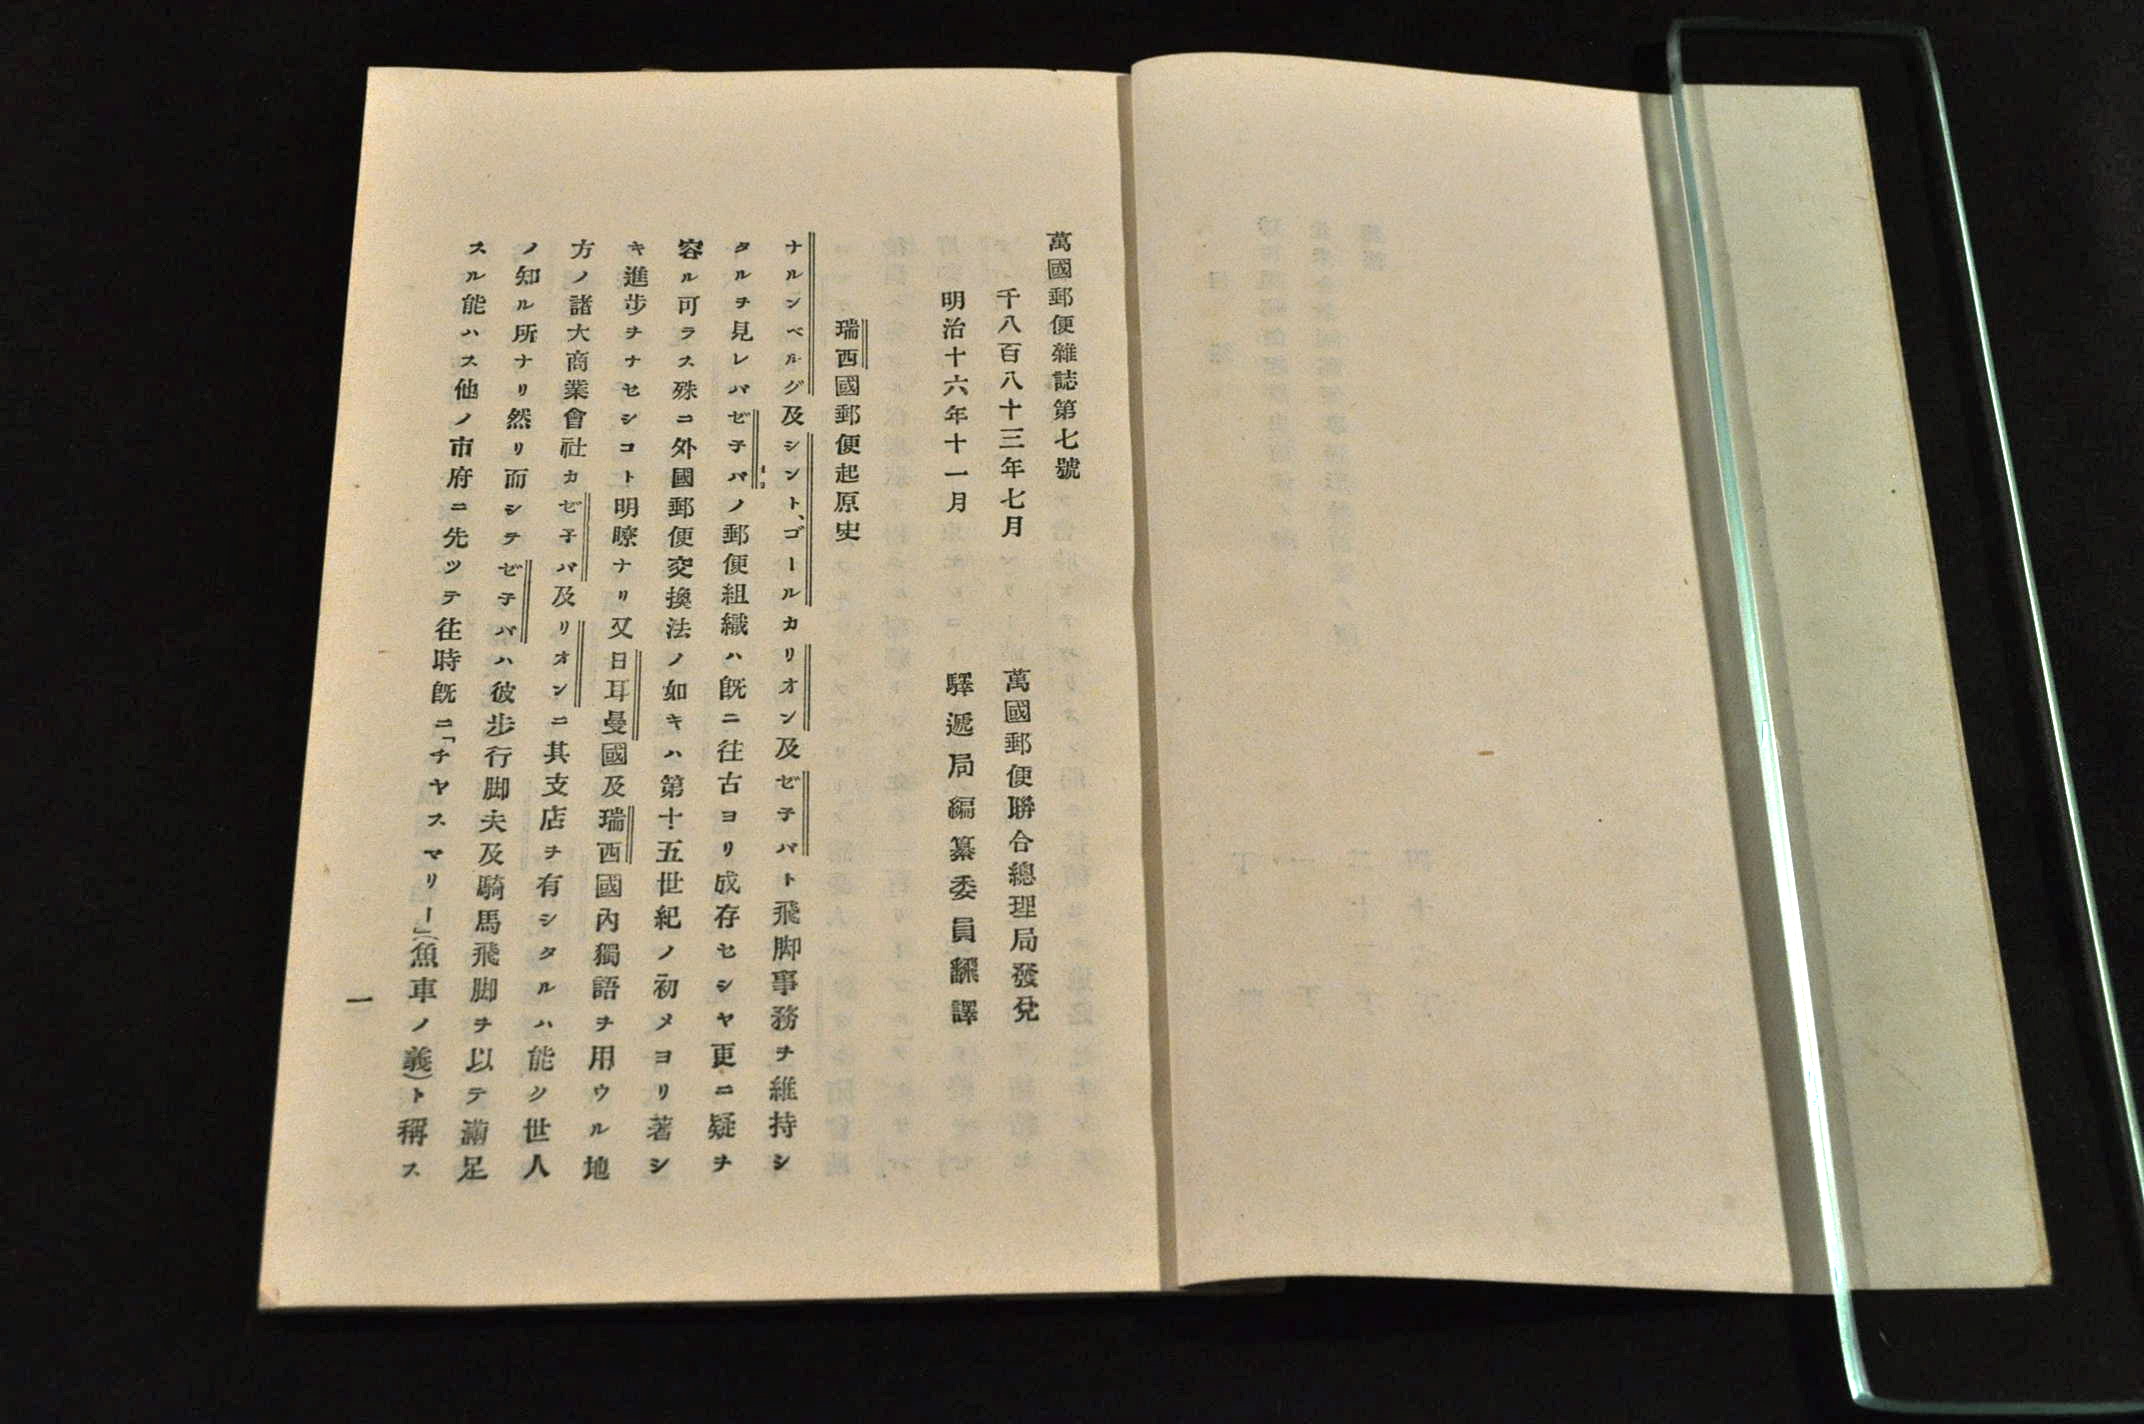 萬國郵便雜誌第七號
千八百八十三年七月
萬國郵便聯合總理局發兌
明治十六年十一月
驛遞局編纂委員飜譯
瑞西國郵便起原史
ナルンベルグ及シント、ゴールカリオン及ゼ子バト飛脚事務ヲ維持シ
タルヲ見レバゼ子バノ郵便組織ハ既ニ往古ヨリ成存セシヤ更ニ疑ヲ
容ル可ラス殊ニ外國郵便交換法ノ如キハ第十五世紀ノ初メヨリ著シ
キ進步ヲナセシコト明瞭ナリ又日耳曼國及瑞西國內獨語ヲ用ウル地
方ノ諸大商業會社カゼ子バ及リオンニ其支店ヲ有シタルハ能ク世人
ノ知ル所ナリ然リ而シテゼ子バハ彼步行脚夫及騎馬飛脚ヲ以テ滿足
スル能ハス他ノ市府ニ先ツテ往時既ニ「チヤスマリー」(魚車ノ義)ト稱ス
一